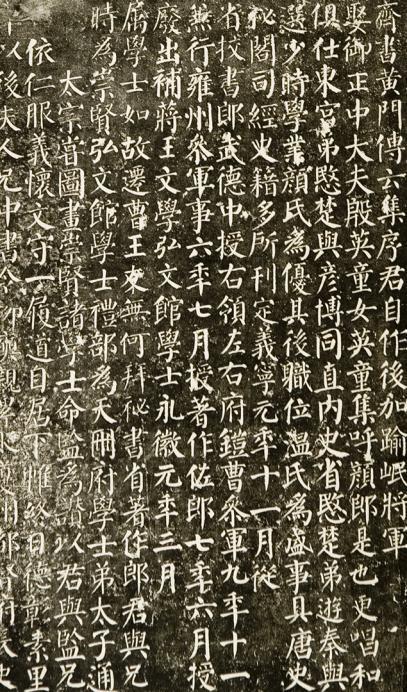 齊書黃門傳云集序君自作後加踰岷將軍
娶御正中大夫殷英童女英童集呼顏郎是也更唱和
俱仕東宮弟愍楚與彥博同直內史省愍楚弟遊秦與
選少時學業顏氏為優其後職位溫氏為盛事具唐史
秘閣司經史籍多所刊定義寧元年十一月從
省挍書郎武德中授右領左右府鎧曹叅軍九年十一
無行雍州叅軍事六年七月授著作佐郎七年六月授
廢出補蔣王文學弘文館學士永徽元年三月
屬學士如故遷曹王友無何拜秘書省著作郎君與兄
時為崇賢弘文館學士禮部為天冊府學士弟太子通
太宗甞圖畫崇賢諸學士命監為讚以君與監兄
依仁服義懷文守一履道自居下帷終日德彰素里
以後夫人兄中書令柳奭親累貶夔州都督府長史